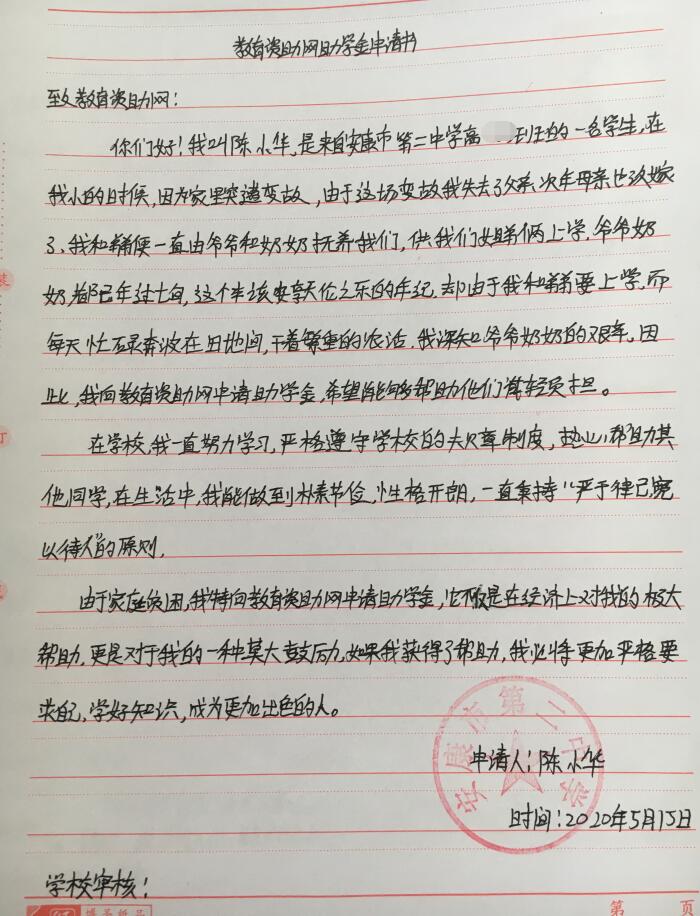 教育资助网助学金申请书
致教育资助网：
你们好！我叫陈小华，是来自安康市第二中学高 班的一名学生，在
我小的时候，因为家里突遭变故，由于这场变故我失去了父亲，次年母亲也改嫁
了、我和弟弟便一直由爷爷和奶奶抚养我们，供我们姐弟俩上学，爷爷奶
奶都已年过七旬，这个本该安享天伦之乐的年纪，却由于我和弟弟要上学，而
每天忙碌奔波在田地间，干着繁重的农活，我深知爷爷奶奶的艰辛。因
此，我向教育资助网申请助学金，希望能够帮助他们减轻负担。
在学校，我一直努力学习，严格遵守学校的规章制度，热心帮助其
他同学，在生活中，我能做到朴素节俭，性格开朗，一直秉持“严于律己，宽
以待人”的原则，
由于家庭贫困，我特向教育资助网申请助学金，它不仅是在经济上对我的极大
帮助，更是对于我的一种莫大鼓励，如果我获得了帮助，我必将更加严格要
求自己，学好知识，成为更加出色的人。
申请人：陈小华
时间：2020年5月15日
安康市第二中学
学校审核：
博圣纸品
第 页
装
订